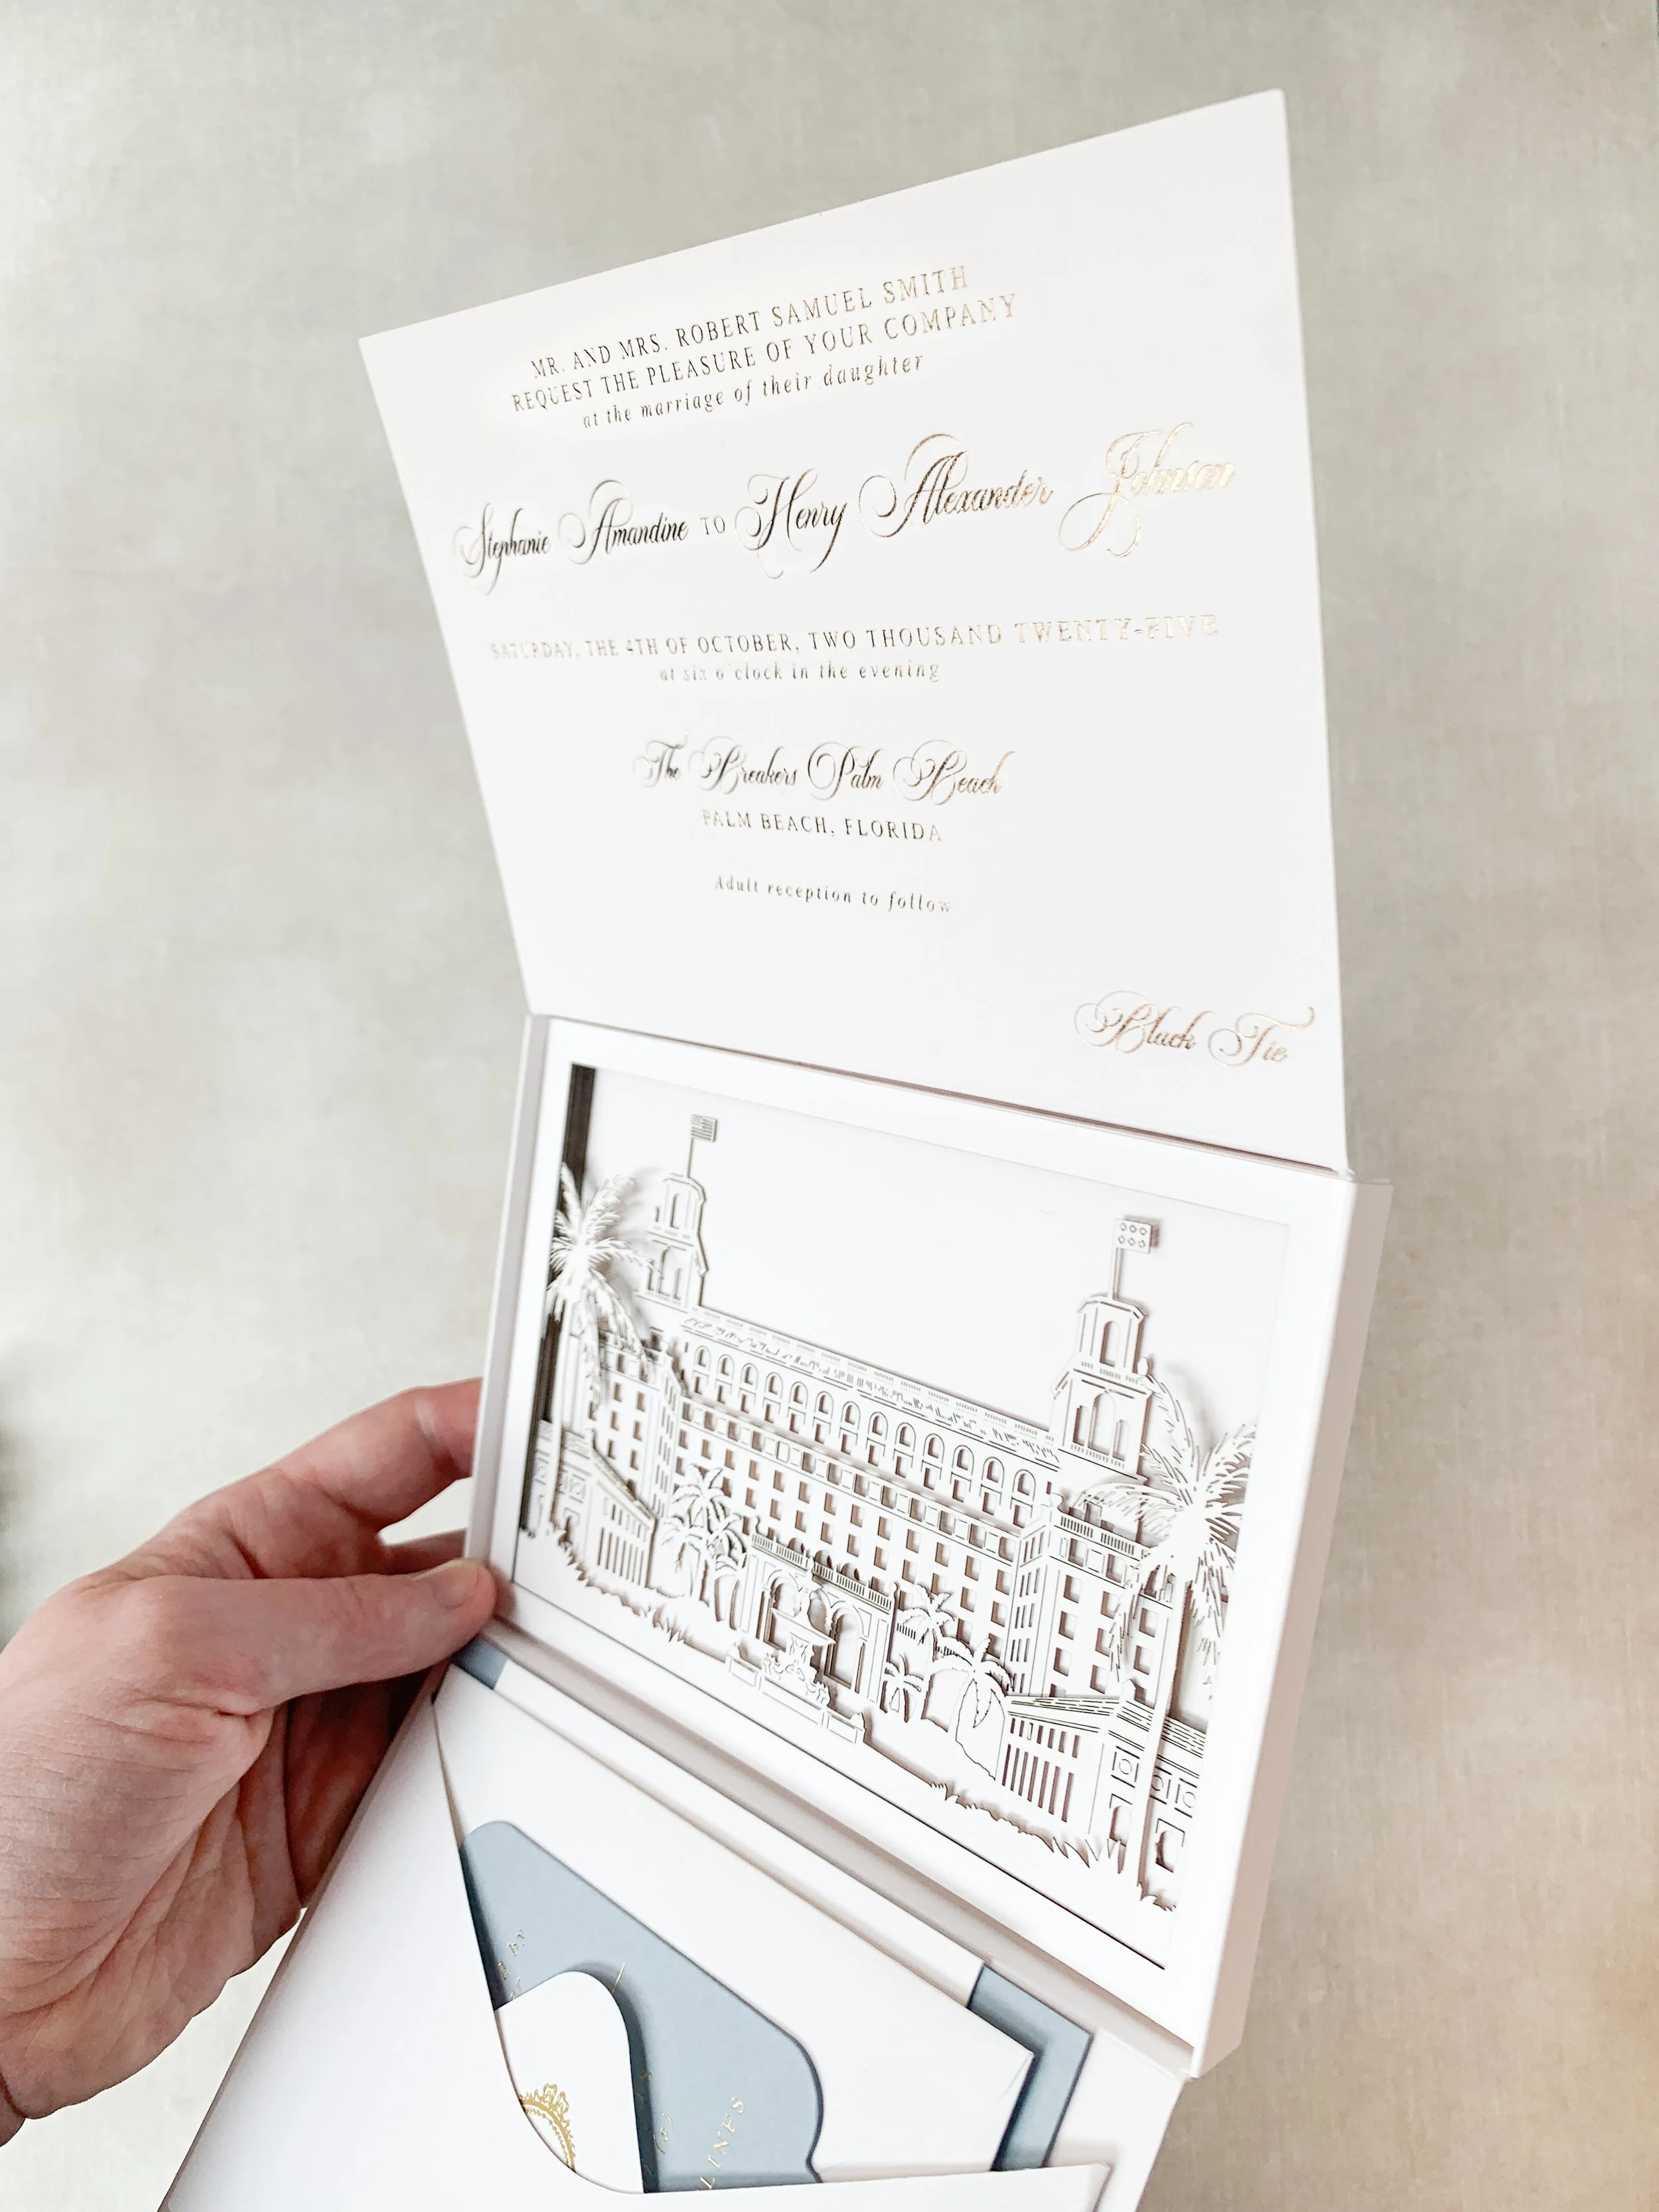 MR. AND MRS. ROBERT SAMUEL SMITH
REQUEST THE PLEASURE OF YOUR COMPANY
at the marriage of their daughter
Stephanie Amandine TO Henry Alexander Johnson
SATURDAY, THE 4TH OF OCTOBER, TWO THOUSAND TWENTY-FIVE
at six o'clock in the evening
The Breakers Palm Beach
PALM BEACH, FLORIDA
Adult reception to follow
Black Tie
by